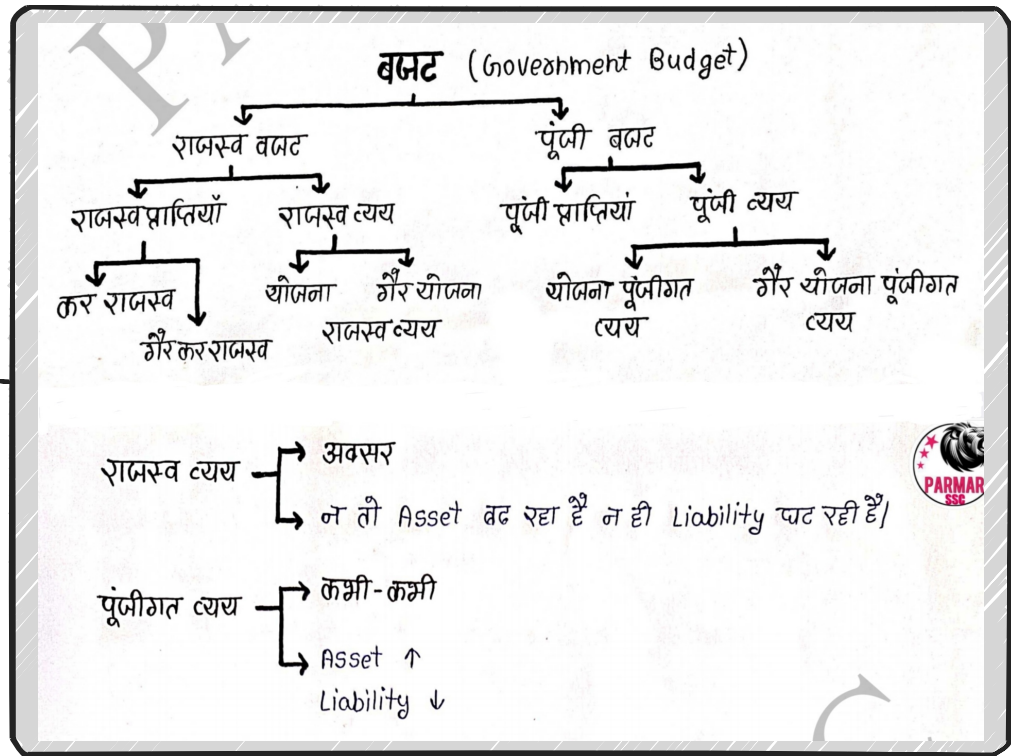 बजट (Government Budget)
राजस्व बजट पूंजी बजट
राजस्व प्राप्तियाँ राजस्व व्यय पूंजी प्राप्तियां पूंजी व्यय
कर राजस्व योजना गैर योजना योजना पूंजीगत गैर योजना पूंजीगत
गैर कर राजस्व राजस्व व्यय व्यय व्यय
राजस्व व्यय अक्सर
न तो Asset बढ रहा है न ही Liability घट रही है।
पूंजीगत व्यय कभी-कभी
Asset ↑
Liability ↓
PARMAR
SSC